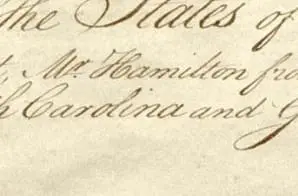 the States of
Mr. Hamilton fro
h Carolina and G